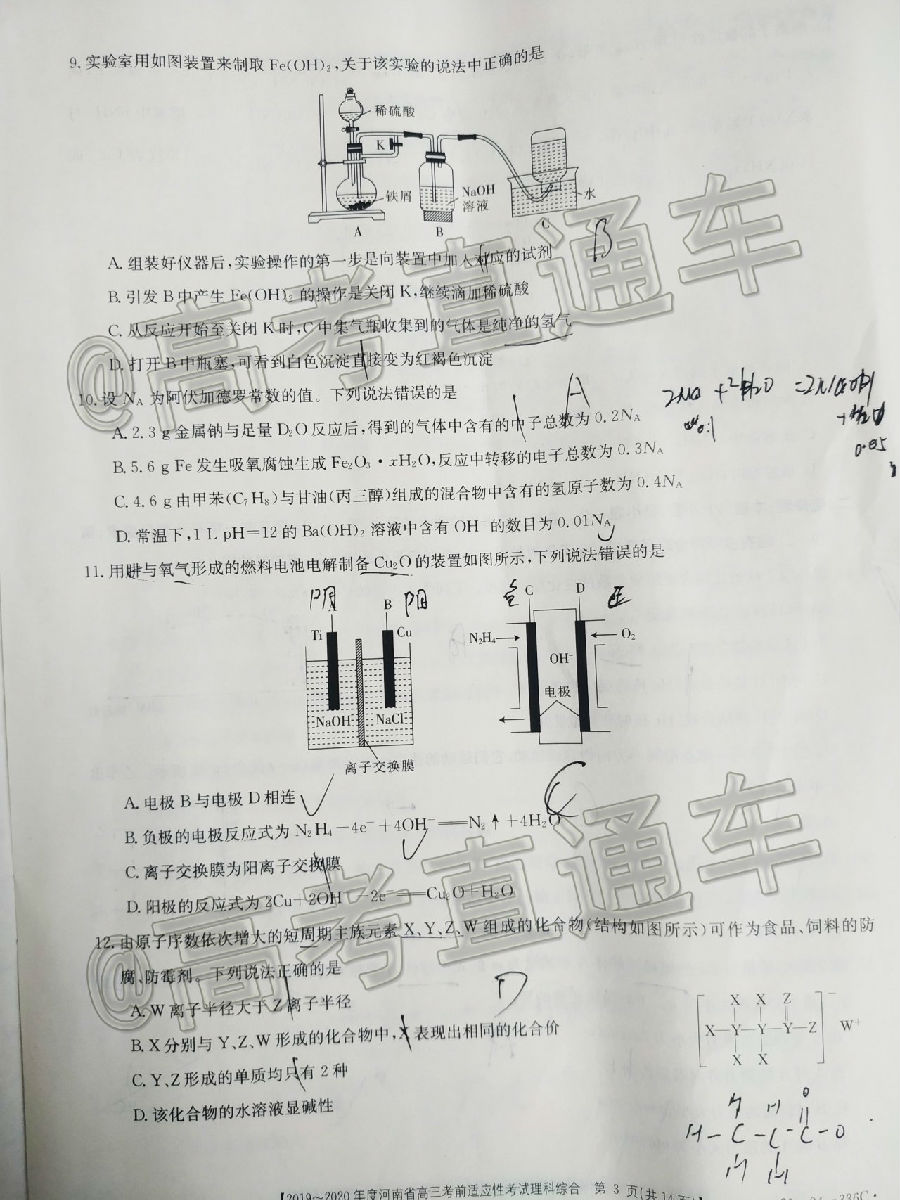 9. 实验室用如图装置来制取 Fe(OH)₂,关于该实验的说法中正确的是
稀硫酸
K
铁屑
NaOH
溶液
水
A
B
C
B
A. 组装好仪器后,实验操作的第一步是向装置中加入对应的试剂
B. 引发 B 中产生 Fe(OH)₂ 的操作是关闭 K,继续滴加稀硫酸
C. 从反应开始至关闭 K 时,C 中集气瓶收集到的气体是纯净的氢气
D. 打开 B 中瓶塞,可看到白色沉淀直接变为红褐色沉淀
10. 设 Nᴀ 为阿伏加德罗常数的值。下列说法错误的是
A
A. 2.3 g 金属钠与足量 D₂O 反应后,得到的气体中含有的中子总数为 0.2Nᴀ
B. 5.6 g Fe 发生吸氧腐蚀生成 Fe₂O₃·xH₂O,反应中转移的电子总数为 0.3Nᴀ
C. 4.6 g 由甲苯(C₇H₈)与甘油(丙三醇)组成的混合物中含有的氢原子数为 0.4Nᴀ
D. 常温下,1 L pH=12 的 Ba(OH)₂ 溶液中含有 OH⁻ 的数目为 0.01Nᴀ
11. 用肼与氧气形成的燃料电池电解制备 Cu₂O 的装置如图所示,下列说法错误的是
阴 阳
A B
Ti Cu
NaOH NaCl
离子交换膜
负 C D 正
N₂H₄ O₂
OH⁻
电极
C
A. 电极 B 与电极 D 相连
B. 负极的电极反应式为 N₂H₄−4e⁻+4OH⁻══N₂↑+4H₂O
C. 离子交换膜为阳离子交换膜
D. 阳极的反应式为 2Cu+2OH⁻−2e⁻══Cu₂O+H₂O
12. 由原子序数依次增大的短周期主族元素 X、Y、Z、W 组成的化合物(结构如图所示)可作为食品、饲料的防
腐、防霉剂。下列说法正确的是
D
A. W 离子半径大于 Z 离子半径
B. X 分别与 Y、Z、W 形成的化合物中,X 表现出相同的化合价
C. Y、Z 形成的单质均只有 2 种
D. 该化合物的水溶液显碱性
X X Z
X—Y—Y—Y—Z
X X
− W⁺
H H O
H—C—C—C—O
H H
【2019~2020 年度河南省高三考前适应性考试理科综合 第 3 页(共 14 页)
@高考直通车
@高考直通车